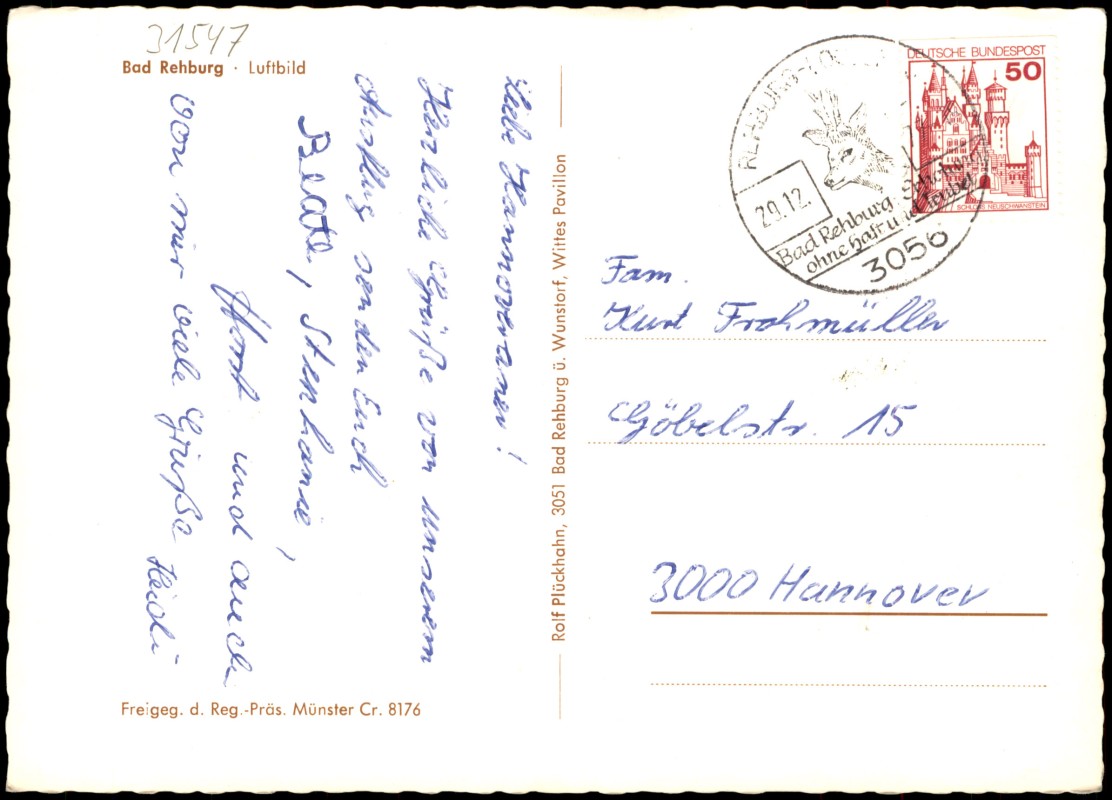 31547
Bad Rehburg · Luftbild
Liebe Hannoveraner!
Herzliche Grüße von unserem
Ausflug senden Euch
Beate, Stephanie,
Horst und auch
von mir viele Grüße Heidi
Freigeg. d. Reg.-Präs. Münster Cr. 8176
Rolf Plückhahn, 3051 Bad Rehburg ü. Wunstorf, Wittes Pavillon
DEUTSCHE BUNDESPOST
50
SCHLOSS NEUSCHWANSTEIN
REHBURG-LO
29.12.
Bad Rehburg
ohne Hast und Trubel
3056
Fam.
Kurt Frohmüller
Göbelstr. 15
3000 Hannover